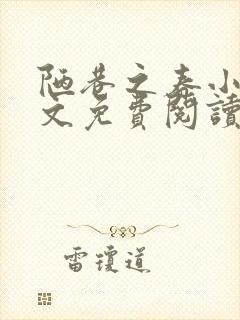 陋巷之春小
文免費閱讀
雷瓊道